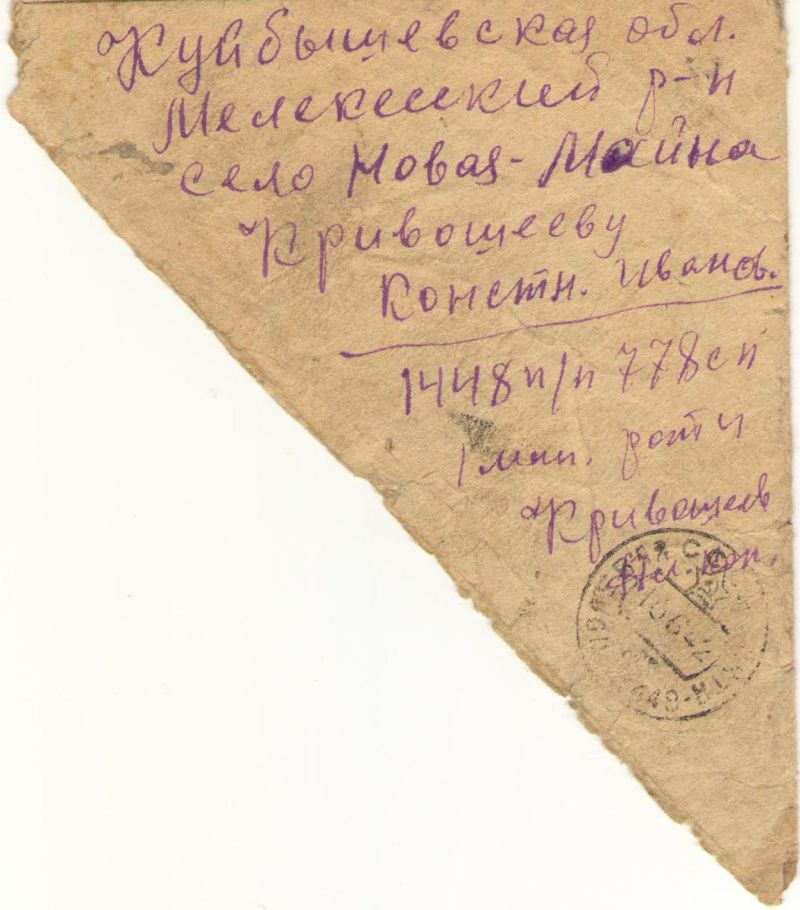 Куйбышевская обл.
Мелекесский р-н
село Новая-Майна
Кривошееву
Констн. Иванов.
1448 п/п 778 сп
1 мин. роты
Кривошеев
ПОЛЕВАЯ